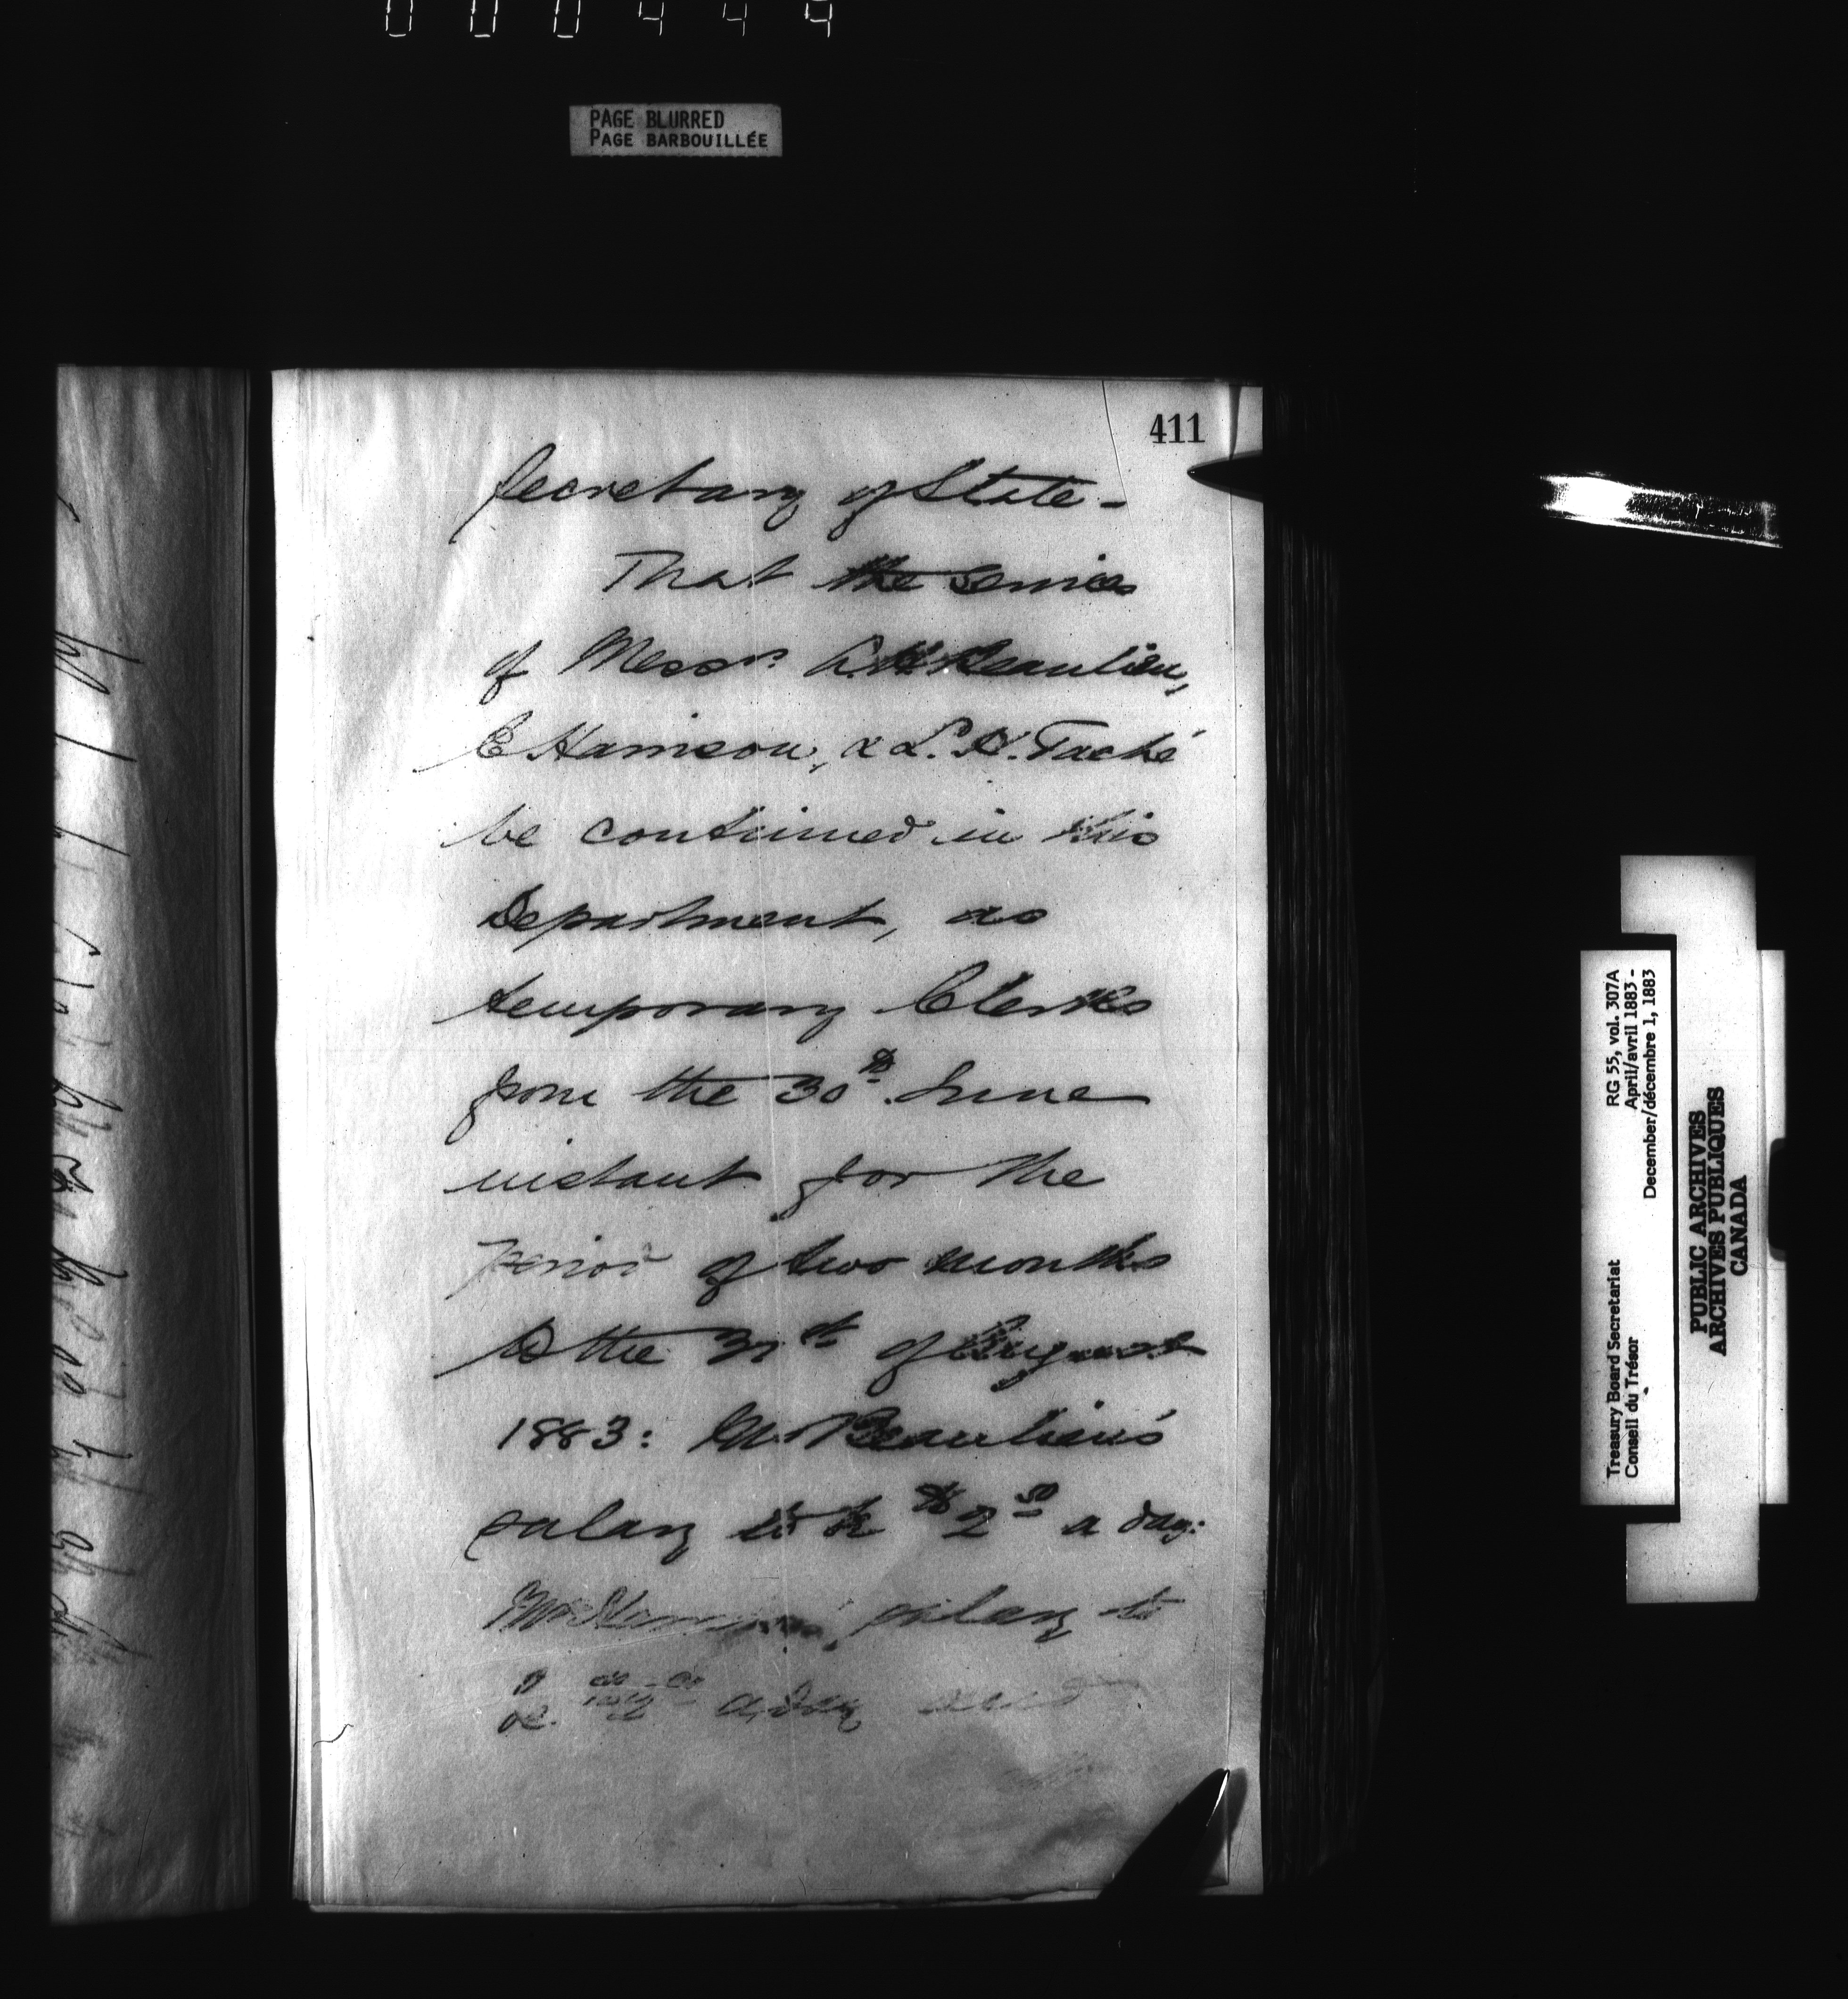 000449
PAGE BLURRED
PAGE BARBOUILLÉE
411
Secretary of State -
That the services
of Messrs. A. H. Beaulieu,
E Harrison, & L. H. Taché
be continued in this
Department, as
temporary Clerks
from the 30th June
instant for the
period of two months
to the 31st of August
1883: Mr. Beaulieu's
salary to be $2 50 a day:
Mr. salary to
be $2 a day and
RG 55, vol. 307A
April/avril 1883 -
December/décembre 1, 1883
Treasury Board Secretariat
Conseil du Trésor
PUBLIC ARCHIVES
ARCHIVES PUBLIQUES
CANADA